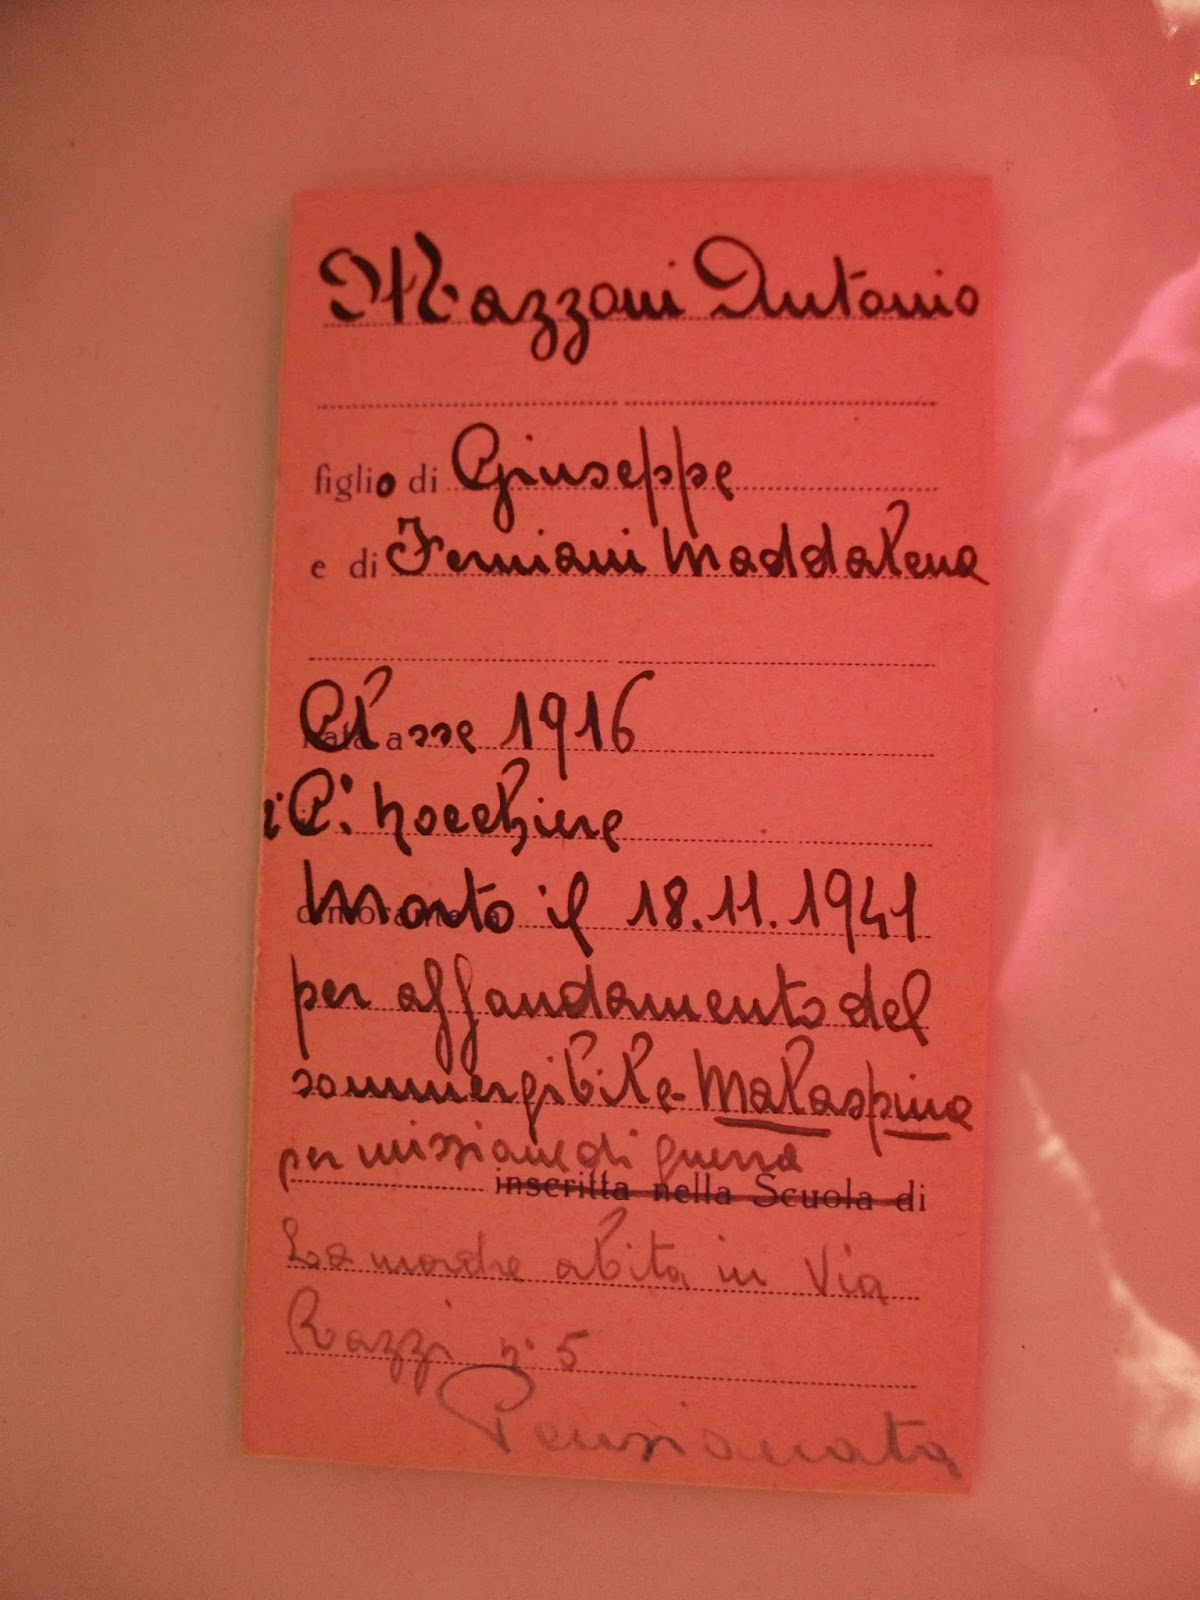 Mazzoni Antonio
figlio di Giuseppe
e di Ferniani Maddalena
Classe 1916
C. Nocchiere
Morto il 18.11.1941
per affondamento del
sommergibile - Malaspina
per missione di guerra
inscritta nella Scuola di
La madre abita in Via
Razzi n. 5
Pensionata